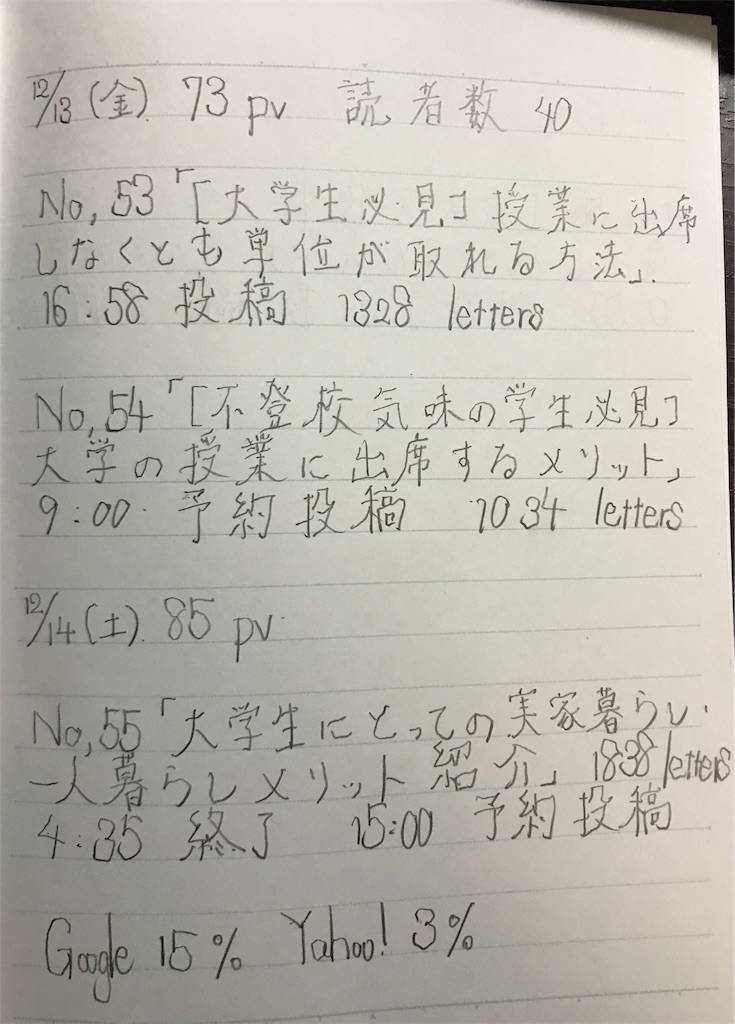 12/13(金). 73 pv 読者数 40
No,53「[大学生必見]授業に出席
しなくとも単位が取れる方法」.
16:58 投稿 1328 letters
No,54「[不登校気味の学生必見]
大学の授業に出席するメリット」
9:00 予約投稿 1034 letters
12/14(土). 85 pv
No,55「大学生にとっての実家暮らし・
一人暮らしメリット紹介」 1838 letters
4:35 終了 15:00 予約投稿
Google 15% Yahoo! 3%